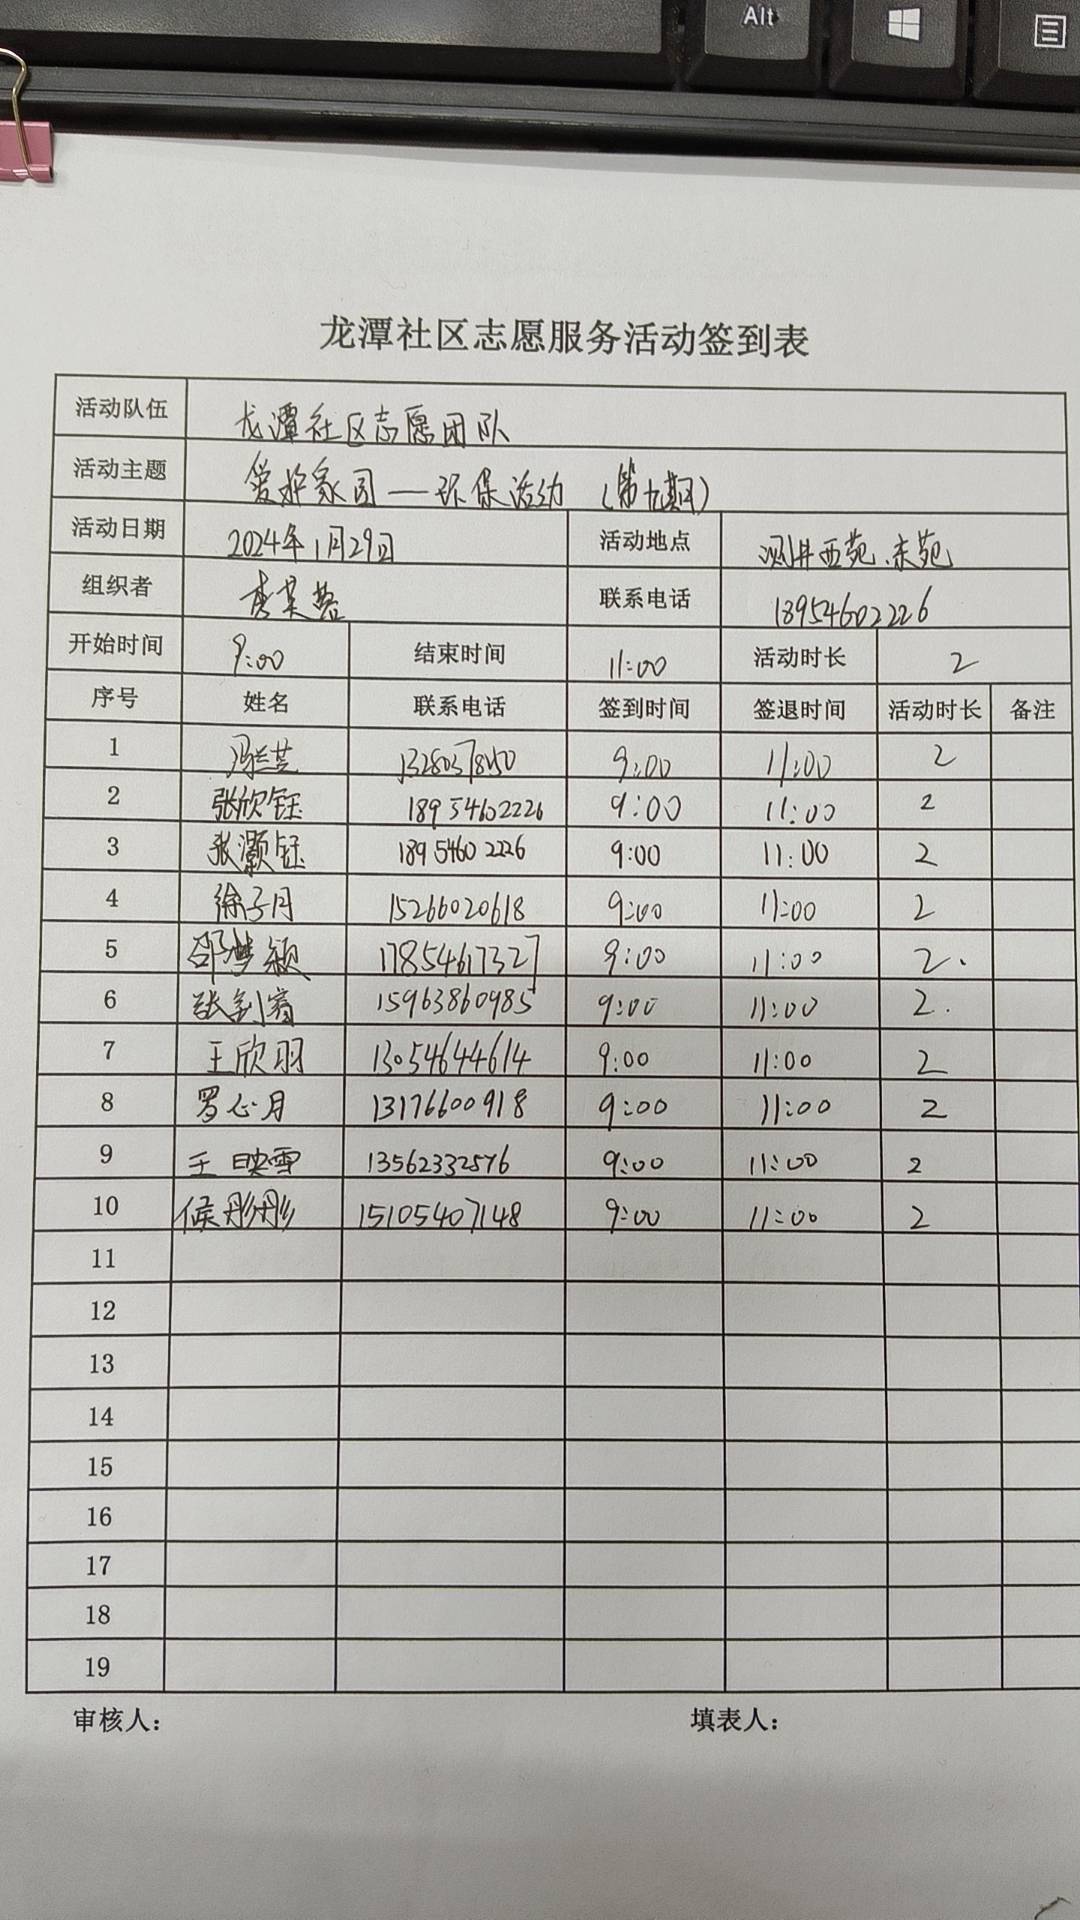 Alt
龙潭社区志愿服务活动签到表
活动队伍 龙潭社区志愿团队
活动主题 爱护家园——环保活动（第九期）
活动日期 2024年1月29日 活动地点 测井西苑、东苑
组织者 李芙蓉 联系电话 18954602226
开始时间 9:00 结束时间 11:00 活动时长 2
序号 姓名 联系电话 签到时间 签退时间 活动时长 备注
1 冯兰芝 9:00 11:00 2
2 张欣钰 18954602226 9:00 11:00 2
3 张灏钰 18954602226 9:00 11:00 2
4 徐子月 15266020618 9:00 11:00 2
5 邵梦颖 17854617327 9:00 11:00 2.
6 张 15963860985 9:00 11:00 2.
7 王欣羽 13054644614 9:00 11:00 2
8 罗心月 13176600918 9:00 11:00 2
9 王映雪 13562332576 9:00 11:00 2
10 侯彤彤 15105407148 9:00 11:00 2
11
12
13
14
15
16
17
18
19
审核人： 填表人：